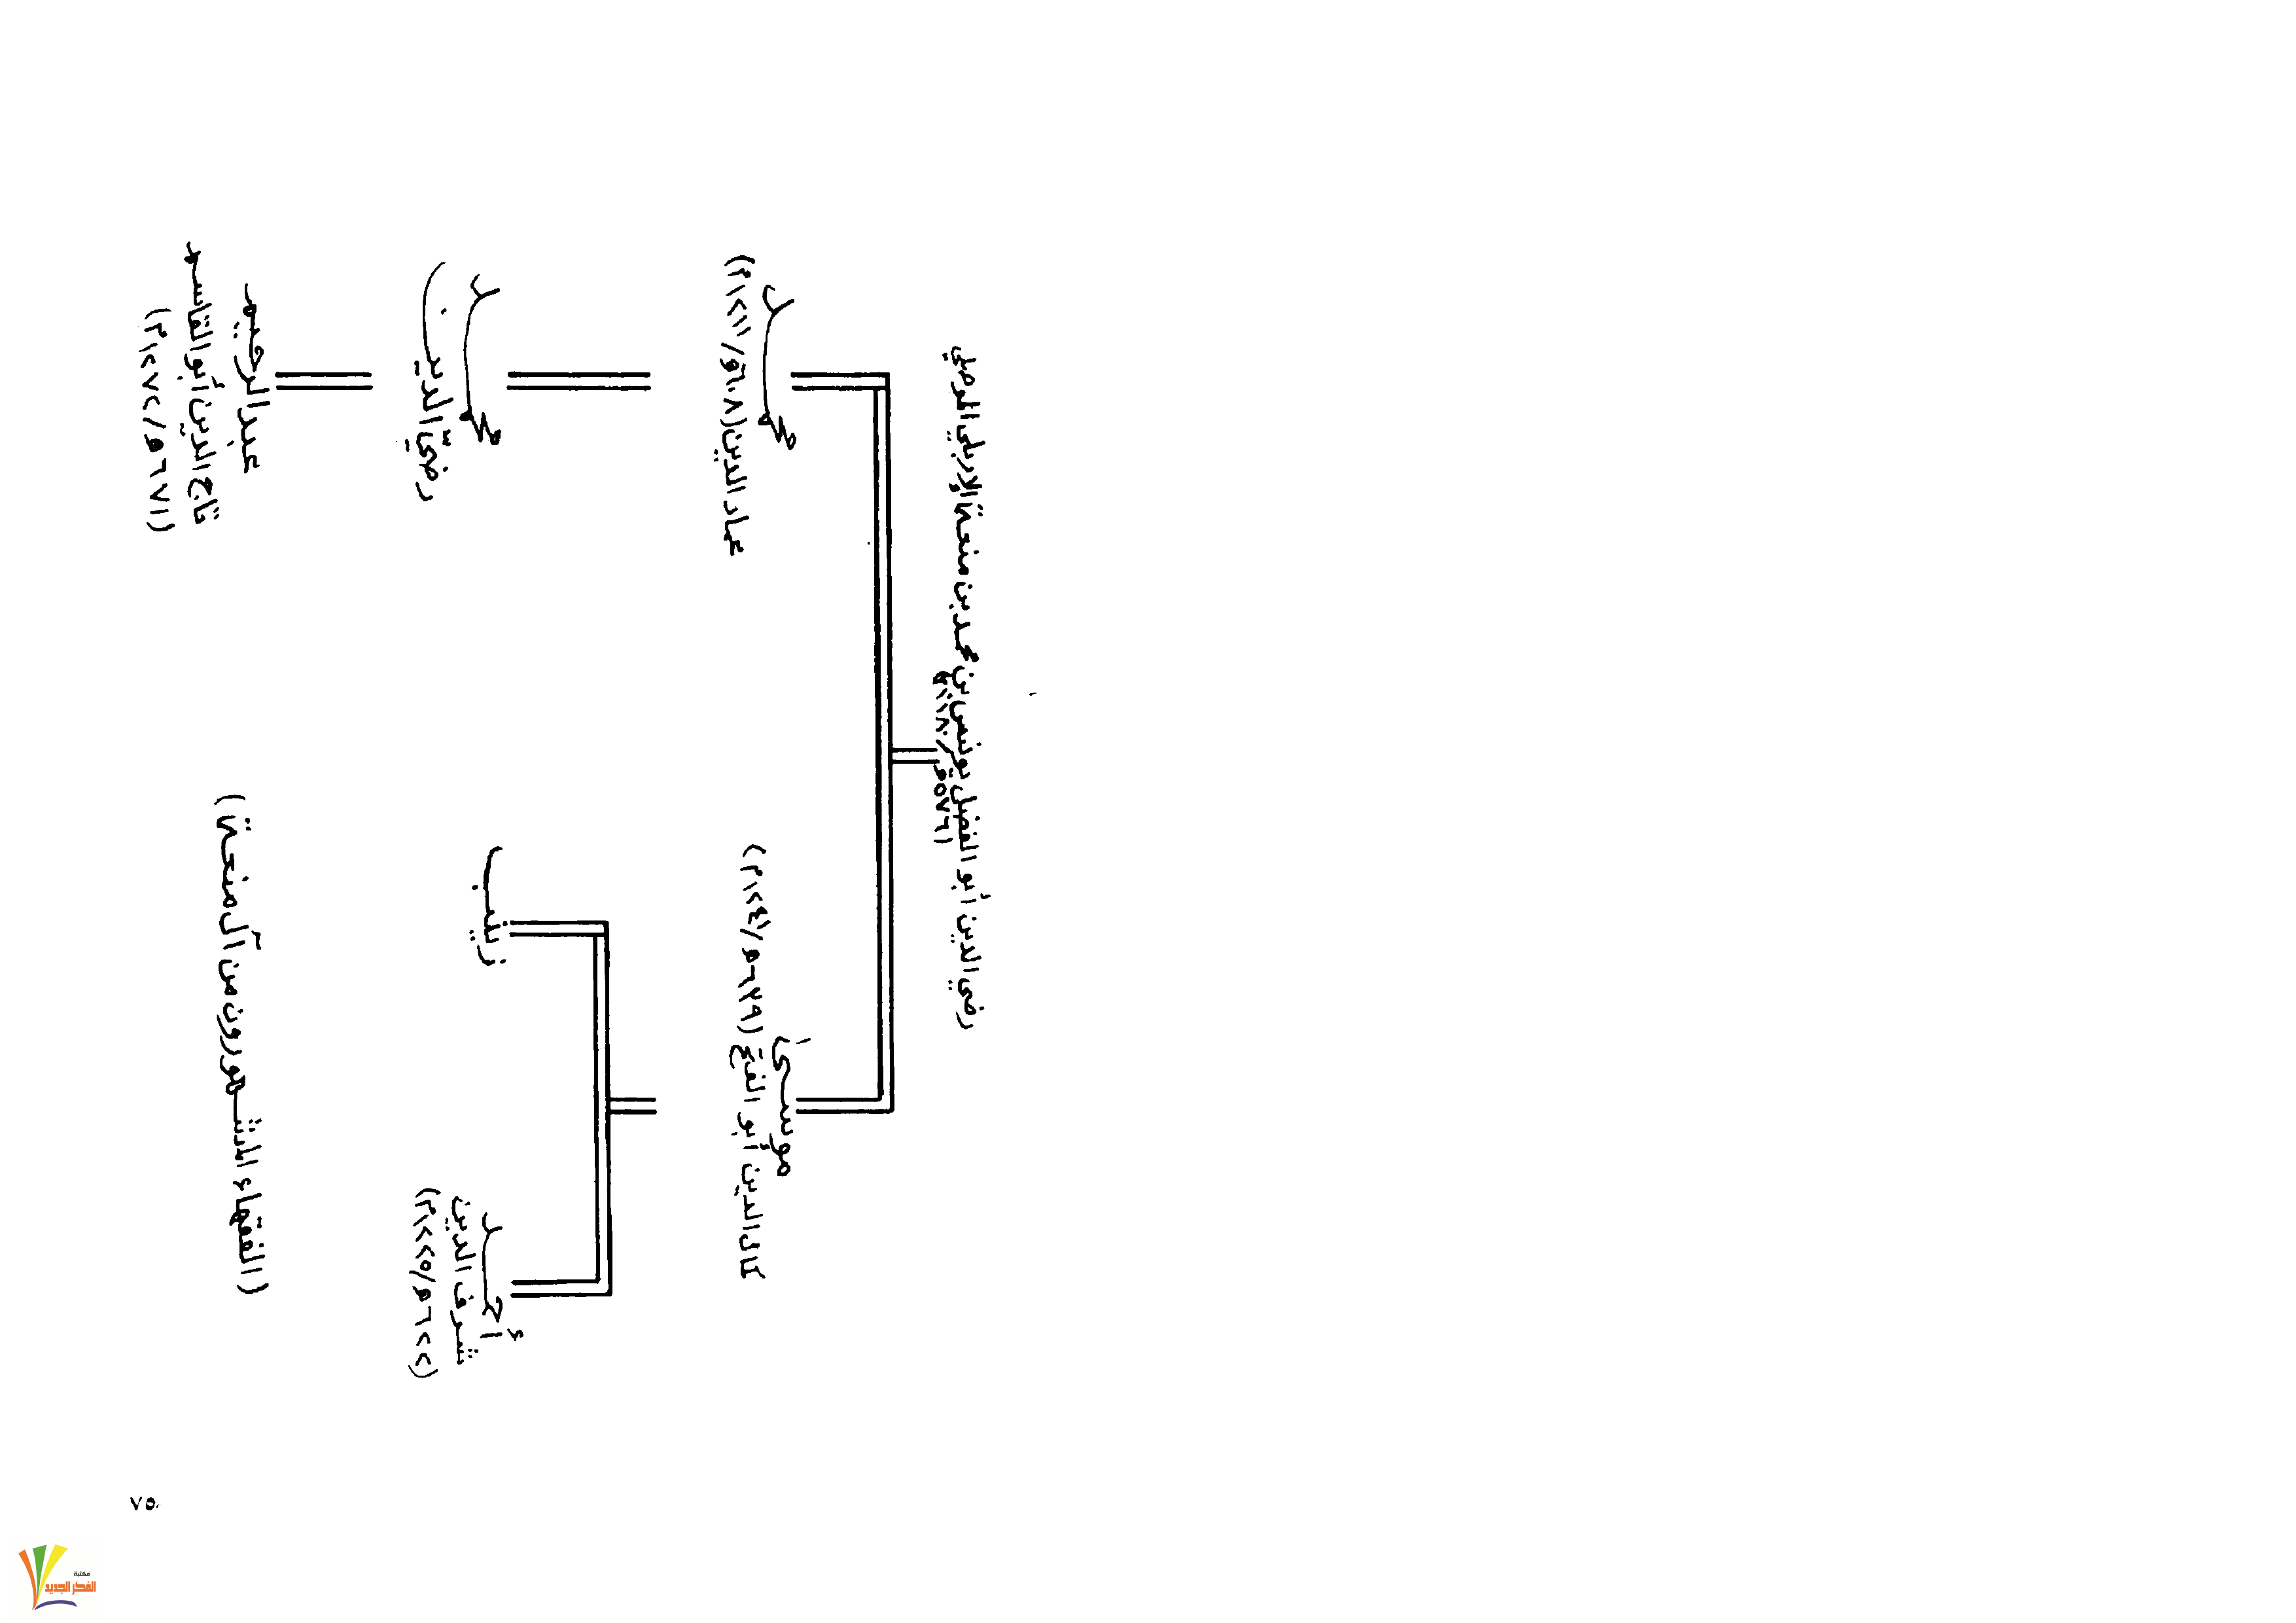 رضي الدين أبو الفضل يونس بن محمد بن منعة الإربلي الموصلي
(٥٧٦هـ/١١٨٠م)
موسى
كمال الدين أبو الفتح (٦٣٩هـ/١٢٤١م)
محمد
عماد الدين (٦٠٨هـ/١٢١١م)
أحمد
شرف الدين
(٦٢٢هـ/١٢٢٥م)
زينب
محمد
رضيّ الدين
عبد الرحيم
تاج الدين أبو القاسم
(٦٧١هـ/١٢٧٢م)
(الفقهاء المشهورون من آل منعة)
٧٥
مكتبة
الفكر الجديد